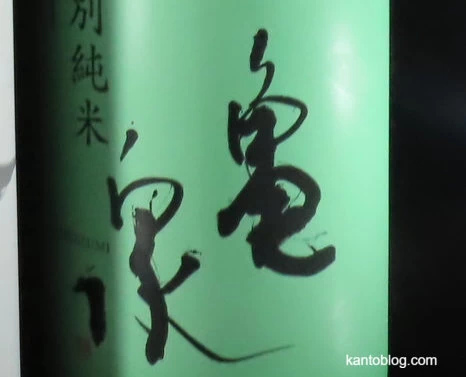 亀泉
別純米
kantoblog.com